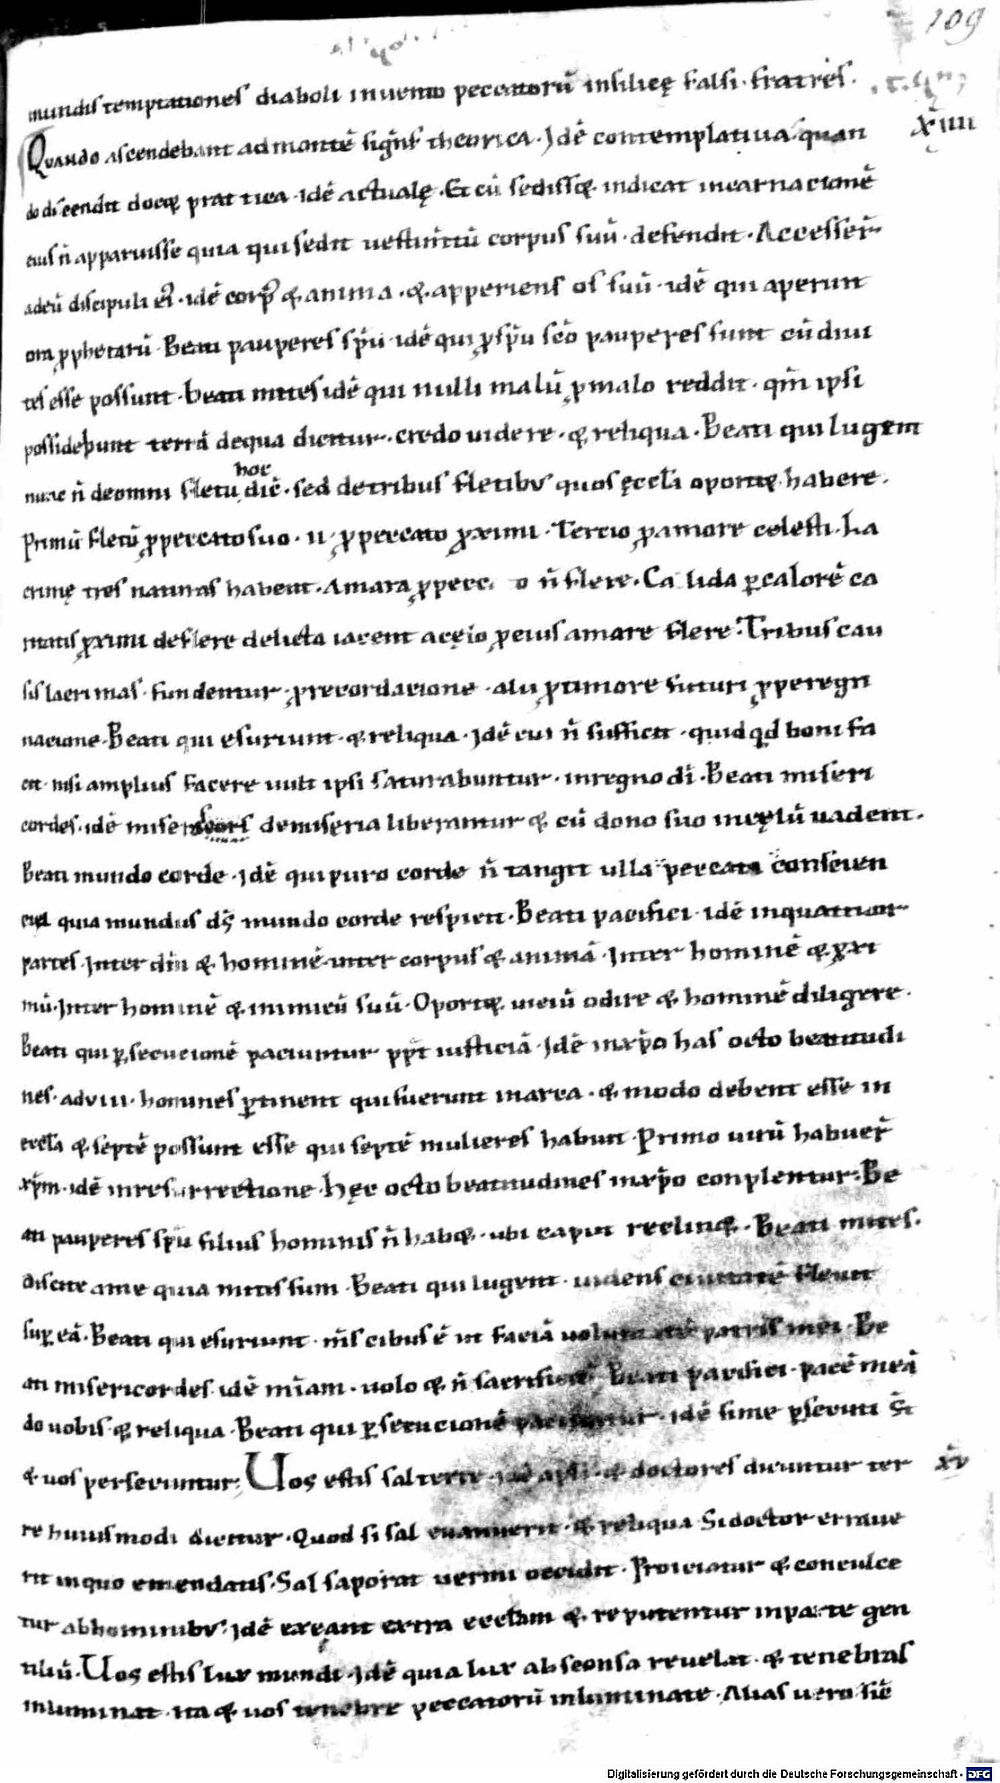 109
mundis temptationes diaboli inuenio peccatorū insilicę falsi fratres.
Quando ascendebant ad montē signt̄ theorica. Idē contemplatiua. quan xiiii
do discendit docꝫ prattica. idē actualę. Et cū sedissꝫ indicat incarnacionē
eius n̄ apparuisse quia qui sedit uestim̄tū corpus suū. defendit. Accesser̄
adeū discipuli ei. idē corp⁹ & anima. & apperiens os suū. idē qui aperuit
ora ꝓphetarū. Beati pauperes sp̄u. idē qui ꝓ sp̄u sc̄o pauperes sunt cū diui
tes esse possunt. beati mites idē qui nulli malū ꝓ malo reddit. qm̄ ipsi
possidebunt terrā dequa dicitur. credo uidere. & reliqua. Beati qui lugent
hoc
nunc n̄ deomni fletu dic̄. sed detribus fletibus quos ęccl̄i oportꝫ habere.
Primū fletū ꝓ peccato suo. ii. ꝓ peccato ꝓximi. Tercio ꝓ amore celesti. La
crimę tres naturas habent. Amara ꝓ pecc o n̄ flere. Calida ꝑ calorē ca
ritatis ꝓximi deflere delicta iacent ꝓ eius amare flere. Tribus cau
sis lacrimas fundentur. ꝓ recordacione. alii ꝓ timore futuri ꝓ peregri
nacione. Beati qui esuriunt. & reliqua. Idē cui n̄ sufficit. quid qd̄ boni fa
cit. nisi amplius facere uult ipsi saturabuntur. inregno dī. Beati miseri
cordes. idē demiseria liberantur & cū dono suo incęlū uadent.
Beati mundo corde. Idē qui puro corde n̄ tangit ulla peccata conscien
cia quia mundus ds̄ mundo corde respicit. Beati pacifici. idē inquattuor
partes. Inter dm̄ & hominē. inter corpus & animā. Inter hominē & ꝓxi
mū. Inter hominē & inimicū suū. Oportꝫ uiciū odire & hominē diligere.
Beati qui ꝑsecucionē paciuntur ppt̄ iusticiā. Idē inxp̄o has octo beatitudi
nes. ad viii. homines ꝑtinent qui fuerunt inarca. & modo debent esse in
eccl̄a & septē possunt esse qui septē mulieres habun. Primo uirū habuer̄
xp̄m. idē inresurrectione. hęc octo beatitudines inxp̄o conplentur. Be
ati pauperes sp̄u filius hominis n̄ habꝫ. ubi caput reclinꝫ. Beati mites.
discite ame quia mitis sum. Beati qui lugent. uidens ciuitatē fleuit
suꝑ eā. Beati qui esuriunt. m̄s cibus ē ut faciā uoluntatē patris mei. Be
ati misericordes. idē mīam. uolo & n̄ sacrificiū. Beati pacifici. pacē meā
do uobis. & reliqua. Beati qui ꝑsecucionē paciuntur. idē sime ꝑsecuti st̄
& uos persecuntur. Uos estis sal terre. idē apl̄i. & doctores dicuntur ter xv
re huiusmodi dicitur. Quod si sal euanuerit. & reliqua. Si doctor erraue
rit inquo emendatis. Sal saporat uermi occidit. Proiciatur & conculce
tur ab hominibus. Idē exeant extra eccl̄am & reputentur inparte gen
tiliū. Uos estis lux mundi. Idē quia lux absconsa reuelat. & tenebras
inluminat. ita & uos tenebre peccatorū inluminate. Alias uero sic̄
Digitalisierung gefördert durch die Deutsche Forschungsgemeinschaft - DFG